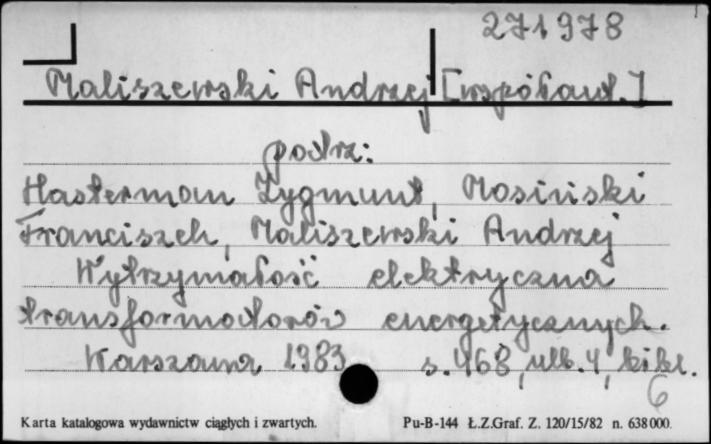 271978
Maliszewski Andrzej [współaut.]
patrz:
Hasterman Zygmunt, Mosiński
Franciszek, Maliszewski Andrzej
Wytrzymałość elektryczna
transformatorów energetycznych.
Warszawa 1983 s. 468, nlb. 4, bibl.
6
Karta katalogowa wydawnictw ciągłych i zwartych. Pu-B-144 Ł.Z.Graf. Z. 120/15/82 n. 638 000.